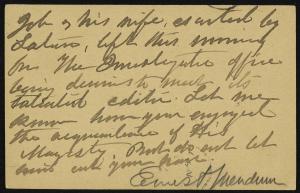 Job & his wife, escorted by
Satan, left this morning
for The Investigator office
being desirous to meet its
talented editor. Let me
know how you enjoyed
the acquaintance of His
Majesty But do not let
him cut your hair.
Ernest Mendum